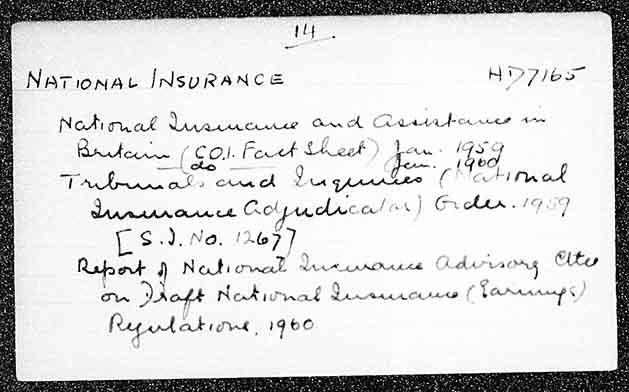 14
NATIONAL INSURANCE HD7165
National Insurance and Assistance in
Britain (C.O.I. Fact Sheet) Jan. 1959
do Jan. 1960
Tribunals and Inquiries (National
Insurance Adjudicator) Order. 1959
[S.I. No. 1267]
Report of National Insurance Advisory Cttee
on Draft National Insurance (Earnings)
Regulations, 1960